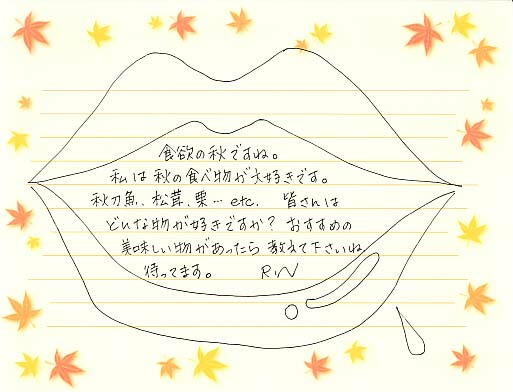 食欲の秋ですね。
私は秋の食べ物が大好きです。
秋刀魚、松茸、栗… etc. 皆さんは
どんな物が好きですか? おすすめの
美味しい物があったら教えて下さいね
待ってます。 RiN